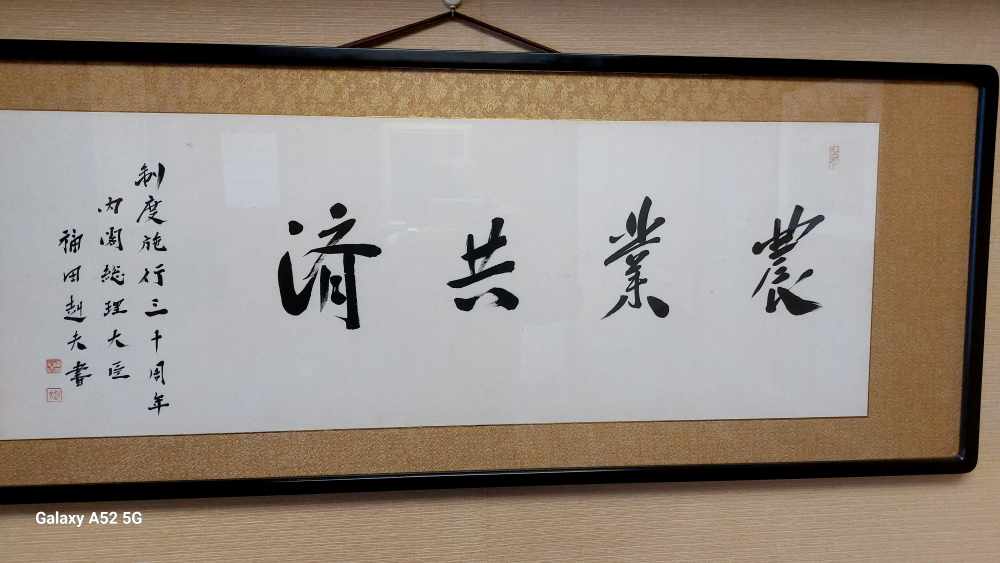 農業共済
制度施行三十周年
内閣総理大臣
福田赳夫書
Galaxy A52 5G